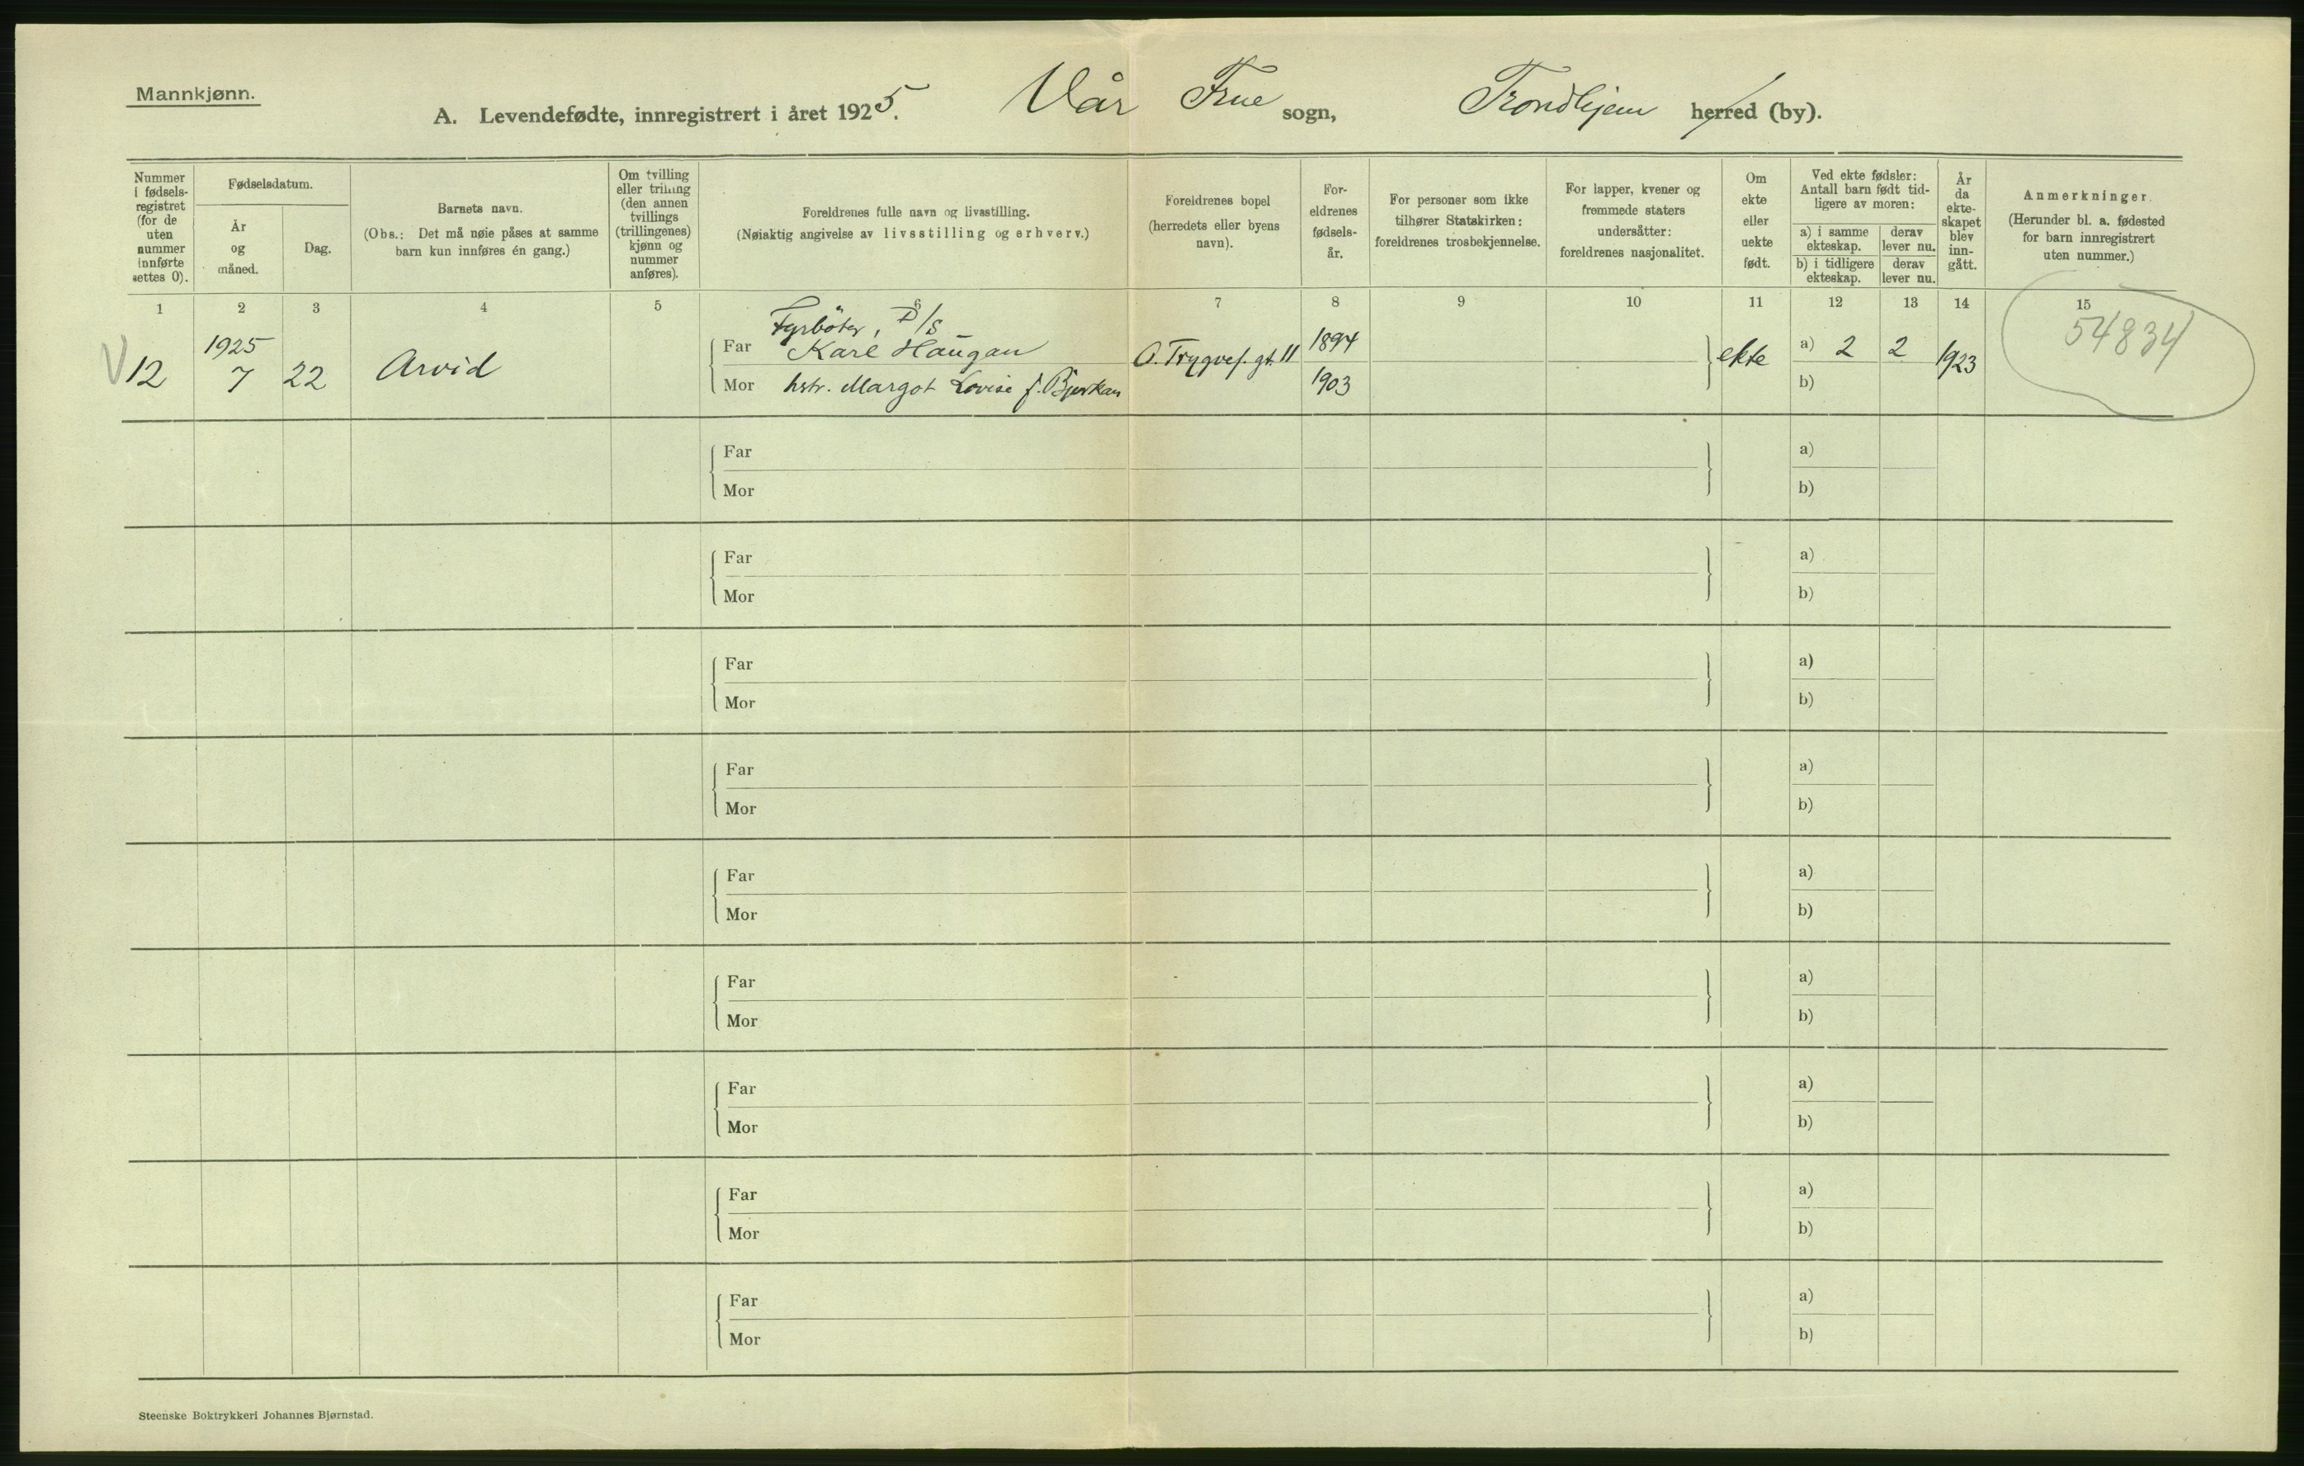 Mannkjønn.
A. Levendefødte, innregistrert i året 1925. Vår Frue sogn, Trondhjem herred (by).
Nummer i fødselsregistret (for de uten nummer innførte settes 0).
Fødselsdatum.
År og måned.
Dag.
Barnets navn.
(Obs.: Det må nøie påses at samme barn kun innføres én gang.)
Om tvilling eller trilling (den annen tvillings (trillingenes) kjønn og nummer anføres).
Foreldrenes fulle navn og livsstilling.
(Nøiaktig angivelse av livsstilling og erhverv.)
Foreldrenes bopel
(herredets eller byens navn).
Foreldrenes fødselsår.
For personer som ikke tilhører Statskirken: foreldrenes trosbekjennelse.
For lapper, kvener og fremmede staters undersåtter: foreldrenes nasjonalitet.
Om ekte eller uekte født.
Ved ekte fødsler: Antall barn født tidligere av moren:
a) i samme ekteskap.
derav lever nu.
b) i tidligere ekteskap.
derav lever nu.
År da ekteskapet blev inngått.
Anmerkninger.
(Herunder bl. a. fødested for barn innregistrert uten nummer.)
1 2 3 4 5 6 7 8 9 10 11 12 13 14 15
Fyrböter, D/S
V 12 1925 7 22 Arvid
Far Karl Haugan
Mor hstr. Margot Lovise f. Bjerkan
O. Trygves. gt. 11
1894
1903
ekte
a) 2 2
b)
1923
54834
Far a)
Mor b)
Far a)
Mor b)
Far a)
Mor b)
Far a)
Mor b)
Far a)
Mor b)
Far a)
Mor b)
Far a)
Mor b)
Far a)
Mor b)
Far a)
Mor b)
Steenske Boktrykkeri Johannes Bjørnstad.